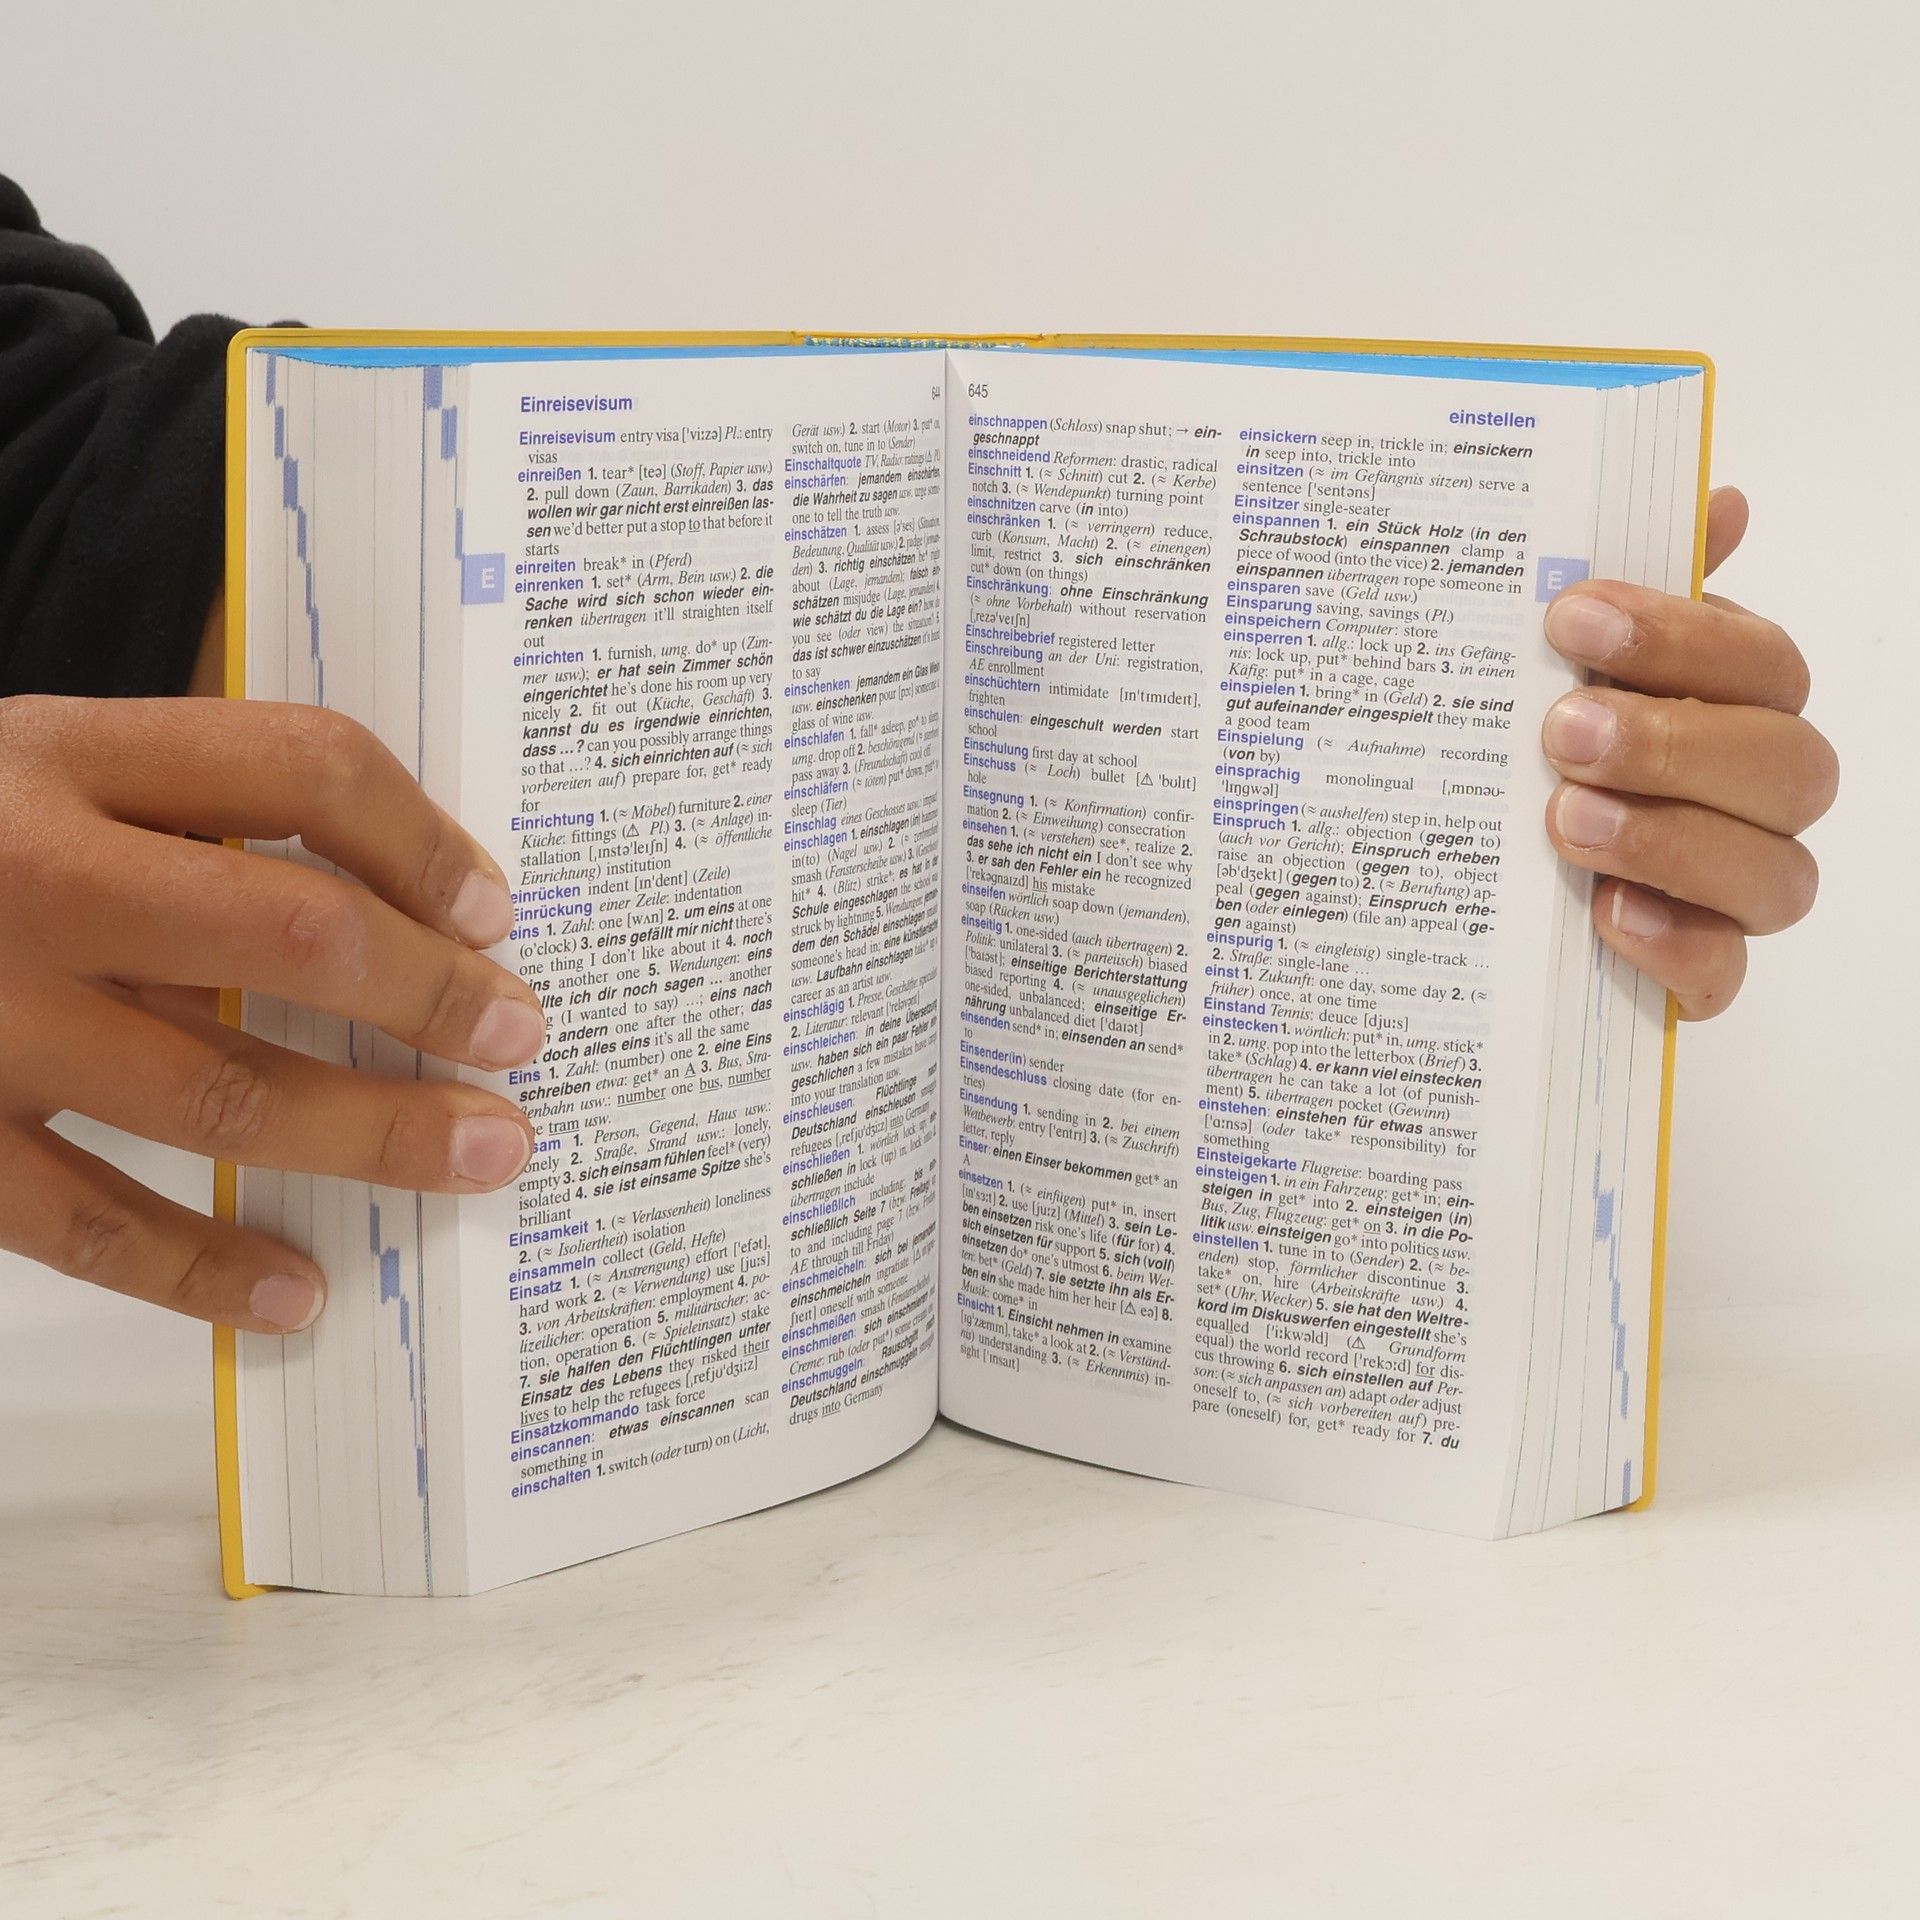 Einreisevisum
644
Einreisevisum entry visa ['viːzə] Pl.: entry
visas
einreißen 1. tear* [teə] (Stoff, Papier usw.)
2. pull down (Zaun, Barrikaden) 3. das
wollen wir gar nicht erst einreißen las-
sen we'd better put a stop to that before it
starts
einreiten break* in (Pferd)
einrenken 1. set* (Arm, Bein usw.) 2. die
Sache wird sich schon wieder ein-
renken übertragen it'll straighten itself
out
einrichten 1. furnish, umg. do* up (Zim-
mer usw.); er hat sein Zimmer schön
eingerichtet he's done his room up very
nicely 2. fit out (Küche, Geschäft) 3.
kannst du es irgendwie einrichten,
dass ...? can you possibly arrange things
so that ...? 4. sich einrichten auf (≈ sich
vorbereiten auf) prepare for, get* ready
for
Einrichtung 1. (≈ Möbel) furniture 2. einer
Küche: fittings (⚠ Pl.) 3. (≈ Anlage) in-
stallation [ˌɪnstə'leɪʃn] 4. (≈ öffentliche
Einrichtung) institution
einrücken indent [ɪn'dent] (Zeile)
Einrückung einer Zeile: indentation
eins 1. Zahl: one [wʌn] 2. um eins at one
(o'clock) 3. eins gefällt mir nicht there's
one thing I don't like about it 4. noch
ins another one 5. Wendungen: eins
llte ich dir noch sagen ... another
g (I wanted to say) ...; eins nach
andern one after the other; das
doch alles eins it's all the same
Eins 1. Zahl: (number) one 2. eine Eins
schreiben etwa: get* an A 3. Bus, Stra-
ßenbahn usw.: number one bus, number
ne tram usw.
sam 1. Person, Gegend, Haus usw.:
onely 2. Straße, Strand usw.: lonely,
empty 3. sich einsam fühlen feel* (very)
isolated 4. sie ist einsame Spitze she's
brilliant
Einsamkeit 1. (≈ Verlassenheit) loneliness
2. (≈ Isoliertheit) isolation
einsammeln collect (Geld, Hefte)
Einsatz 1. (≈ Anstrengung) effort ['efət],
hard work 2. (≈ Verwendung) use [juːs]
3. von Arbeitskräften: employment 4. po-
lizeilicher: operation 5. militärischer: ac-
tion, operation 6. (≈ Spieleinsatz) stake
7. sie halfen den Flüchtlingen unter
Einsatz des Lebens they risked their
lives to help the refugees [ˌrefjʊ'dʒiːz]
Einsatzkommando task force
einscannen: etwas einscannen scan
something in
einschalten 1. switch (oder turn) on (Licht,
Gerät usw.) 2. start (Motor) 3. put* on,
switch on, tune in to (Sender)
Einschaltquote TV, Radio: ratings (⚠ Pl.)
einschärfen: jemandem einschärfen,
die Wahrheit zu sagen usw. urge some-
one to tell the truth usw.
einschätzen 1. assess [ə'ses] (Situation,
Bedeutung, Qualität usw.) 2. judge (jeman-
den) 3. richtig einschätzen be* right
about (Lage, jemanden); falsch ein-
schätzen misjudge (Lage, jemanden) 4.
wie schätzt du die Lage ein? how do
you see (oder view) the situation? 5.
das ist schwer einzuschätzen it's hard
to say
einschenken: jemandem ein Glas Wein
usw. einschenken pour [pɔː] someone a
glass of wine usw.
einschlafen 1. fall* asleep, go* to sleep,
umg. drop off 2. beschönigend
pass away 3. (Freundschaft) cool off
einschläfern (≈ töten) put* down, put* to
sleep (Tier)
Einschlag eines Geschosses usw.: impact
einschlagen 1. einschlagen (in) hammer
in(to) (Nagel usw.) 2.
smash (Fensterscheibe usw.) 3.
hit* 4. (Blitz) strike*; es hat in der
Schule eingeschlagen the school was
struck by lightning 5. Wendungen: jeman-
dem den Schädel einschlagen smash
someone's head in; eine künstlerische
usw. Laufbahn einschlagen take* up a
career as an artist usw.
einschlägig 1. Presse, Geschäfte:
2. Literatur: relevant ['reləvənt]
einschleichen: in deine Übersetzung
usw. haben sich ein paar Fehler ein-
geschlichen a few mistakes have crept
into your translation usw.
einschleusen: Flüchtlinge nach
Deutschland einschleusen smuggle
refugees [ˌrefjʊ'dʒiːz] into Germany
einschließen 1. wörtlich lock up,
schließen in lock (up) in,
übertragen include
einschließlich including; bis ein-
schließlich Seite 7 (bzw. Freitag)
to and including page 7 (bzw. Friday),
AE through till Friday)
einschmeicheln: sich bei jemandem
einschmeicheln ingratiate
oneself with someone
einschmeißen smash (Fensterscheibe)
einschmieren: sich einschmieren mit
Creme: rub (oder put*) some cream on
einschmuggeln: Rauschgift nach
Deutschland einschmuggeln smuggle
drugs into Germany
645
einstellen
einschnappen (Schloss) snap shut; → ein-
geschnappt
einschneidend Reformen: drastic, radical
Einschnitt 1. (≈ Schnitt) cut 2. (≈ Kerbe)
notch 3. (≈ Wendepunkt) turning point
einschnitzen carve (in into)
einschränken 1. (≈ verringern) reduce,
curb (Konsum, Macht) 2. (≈ einengen)
limit, restrict 3. sich einschränken
cut* down (on things)
Einschränkung: ohne Einschränkung
(≈ ohne Vorbehalt) without reservation
[ˌrezə'veɪʃn]
Einschreibebrief registered letter
Einschreibung an der Uni: registration,
AE enrollment
einschüchtern intimidate [ɪn'tɪmɪdeɪt],
frighten
einschulen: eingeschult werden start
school
Einschulung first day at school
Einschuss (≈ Loch) bullet [⚠ 'bʊlɪt]
hole
Einsegnung 1. (≈ Konfirmation) confir-
mation 2. (≈ Einweihung) consecration
einsehen 1. (≈ verstehen) see*, realize 2.
das sehe ich nicht ein I don't see why
3. er sah den Fehler ein he recognized
['rekəgnaɪzd] his mistake
einseifen wörtlich soap down (jemanden),
soap (Rücken usw.)
einseitig 1. one-sided (auch übertragen) 2.
Politik: unilateral 3. (≈ parteiisch) biased
['baɪəst]; einseitige Berichterstattung
biased reporting 4. (≈ unausgeglichen)
one-sided, unbalanced; einseitige Er-
nährung unbalanced diet ['daɪət]
einsenden send* in; einsenden an send*
to
Einsender(in) sender
Einsendeschluss closing date (for en-
tries)
Einsendung 1. sending in 2. bei einem
Wettbewerb: entry ['entrɪ] 3. (≈ Zuschrift)
letter, reply
Einser: einen Einser bekommen get* an
A
einsetzen 1. (≈ einfügen) put* in, insert
[ɪn'sɜːt] 2. use [juːz] (Mittel) 3. sein Le-
ben einsetzen risk one's life (für for) 4.
sich einsetzen für support 5. sich (voll)
einsetzen do* one's utmost 6. beim Wet-
ten: bet* (Geld) 7. sie setzte ihn als Er-
ben ein she made him her heir [⚠ eə] 8.
Musik: come* in
Einsicht 1. Einsicht nehmen in examine
[ɪg'zæmɪn], take* a look at 2. (≈ Verständ-
nis) understanding 3. (≈ Erkenntnis) in-
sight ['ɪnsaɪt]
einsickern seep in, trickle in; einsickern
in seep into, trickle into
einsitzen (≈ im Gefängnis sitzen) serve a
sentence ['sentəns]
Einsitzer single-seater
einspannen 1. ein Stück Holz (in den
Schraubstock) einspannen clamp a
piece of wood (into the vice) 2. jemanden
einspannen übertragen rope someone in
einsparen save (Geld usw.)
Einsparung saving, savings (Pl.)
einspeichern Computer: store
einsperren 1. allg.: lock up 2. ins Gefäng-
nis: lock up, put* behind bars 3. in einen
Käfig: put* in a cage, cage
einspielen 1. bring* in (Geld) 2. sie sind
gut aufeinander eingespielt they make
a good team
Einspielung (≈ Aufnahme) recording
(von by)
einsprachig monolingual [ˌmɒnəʊ-
'lɪŋgwəl]
einspringen (≈ aushelfen) step in, help out
Einspruch 1. allg.: objection (gegen to)
(auch vor Gericht); Einspruch erheben
raise an objection (gegen to), object
[əb'dʒekt] (gegen to) 2. (≈ Berufung) ap-
peal (gegen against); Einspruch erhe-
ben (oder einlegen) (file an) appeal (ge-
gen against)
einspurig 1. (≈ eingleisig) single-track ...
2. Straße: single-lane ...
einst 1. Zukunft: one day, some day 2. (≈
früher) once, at one time
Einstand Tennis: deuce [djuːs]
einstecken 1. wörtlich: put* in, umg. stick*
in 2. umg. pop into the letterbox (Brief) 3.
take* (Schlag) 4. er kann viel einstecken
übertragen he can take a lot (of punish-
ment) 5. übertragen pocket (Gewinn)
einstehen: einstehen für etwas answer
['ɑːnsə] (oder take* responsibility) for
something
Einsteigekarte Flugreise: boarding pass
einsteigen 1. in ein Fahrzeug: get* in; ein-
steigen in get* into 2. einsteigen (in)
Bus, Zug, Flugzeug: get* on 3. in die Po-
litik usw. einsteigen go* into politics usw.
einstellen 1. tune in to (Sender) 2. (≈ be-
enden) stop, förmlicher discontinue 3.
take* on, hire (Arbeitskräfte usw.) 4.
set* (Uhr, Wecker) 5. sie hat den Weltre-
kord im Diskuswerfen eingestellt she's
equalled ['iːkwəld] (⚠ Grundform
equal) the world record ['rekɔːd] for dis-
cus throwing 6. sich einstellen auf Per-
son: (≈ sich anpassen an) adapt oder adjust
oneself to, (≈ sich vorbereiten auf) pre-
pare (oneself) for, get* ready for 7. du
E
E